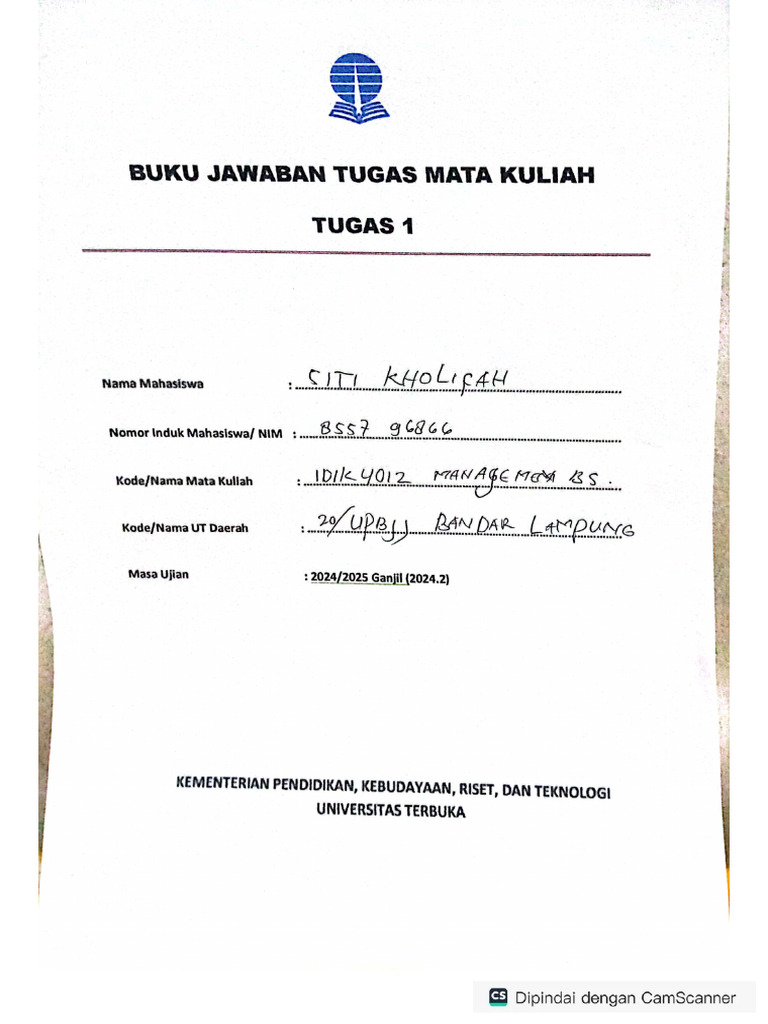 BUKU JAWABAN TUGAS MATA KULIAH
TUGAS 1
Nama Mahasiswa : SITI KHOLIFAH
Nomor Induk Mahasiswa/ NIM : 8557 96866
Kode/Nama Mata Kuliah : IDIK4012 MANAGEMEN BS.
Kode/Nama UT Daerah : 20/UPBJJ BANDAR LAMPUNG
Masa Ujian : 2024/2025 Ganjil (2024.2)
KEMENTERIAN PENDIDIKAN, KEBUDAYAAN, RISET, DAN TEKNOLOGI
UNIVERSITAS TERBUKA
CS Dipindai dengan CamScanner